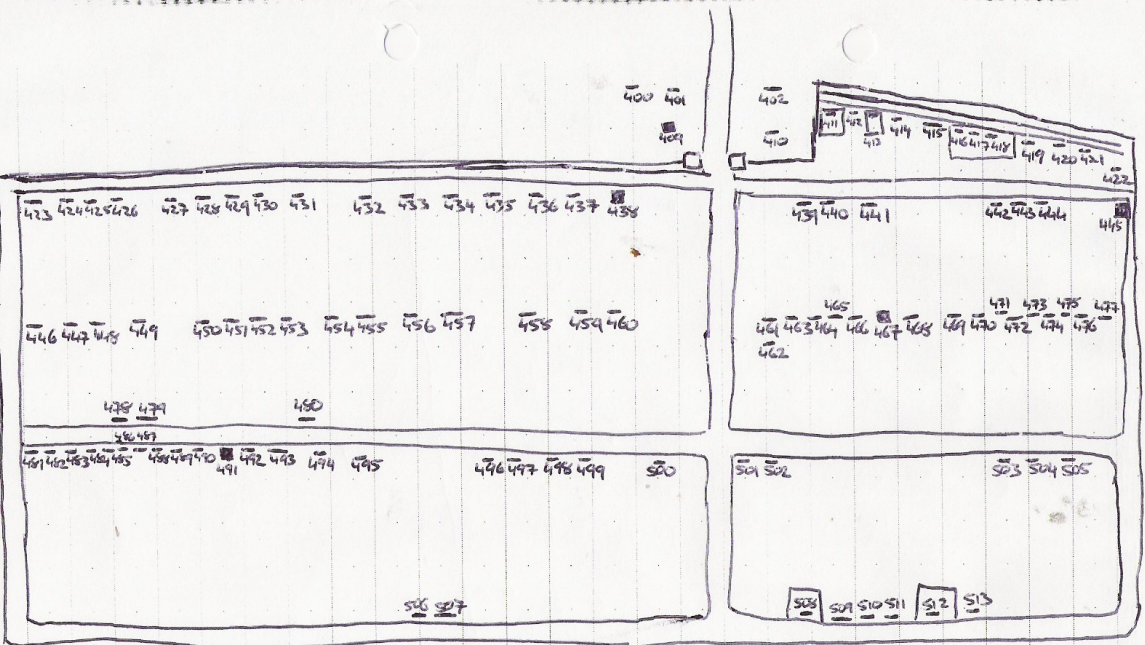 400 401 402
409 410
411 412 413 414 415 416 417 418 419 420 421 422
423 424 425 426 427 428 429 430 431 432 433 434 435 436 437 438
439 440 441 442 443 444 445
446 447 448 449 450 451 452 453 454 455 456 457 458 459 460
461 463 464 465 466 467 468 469 470 471 472 473 474 475 476 477
462
478 479 480
486 487
481 482 483 484 485 488 489 490 491 492 493 494 495 496 497 498 499 500
501 502 503 504 505
506 507
508 509 510 511 512 513